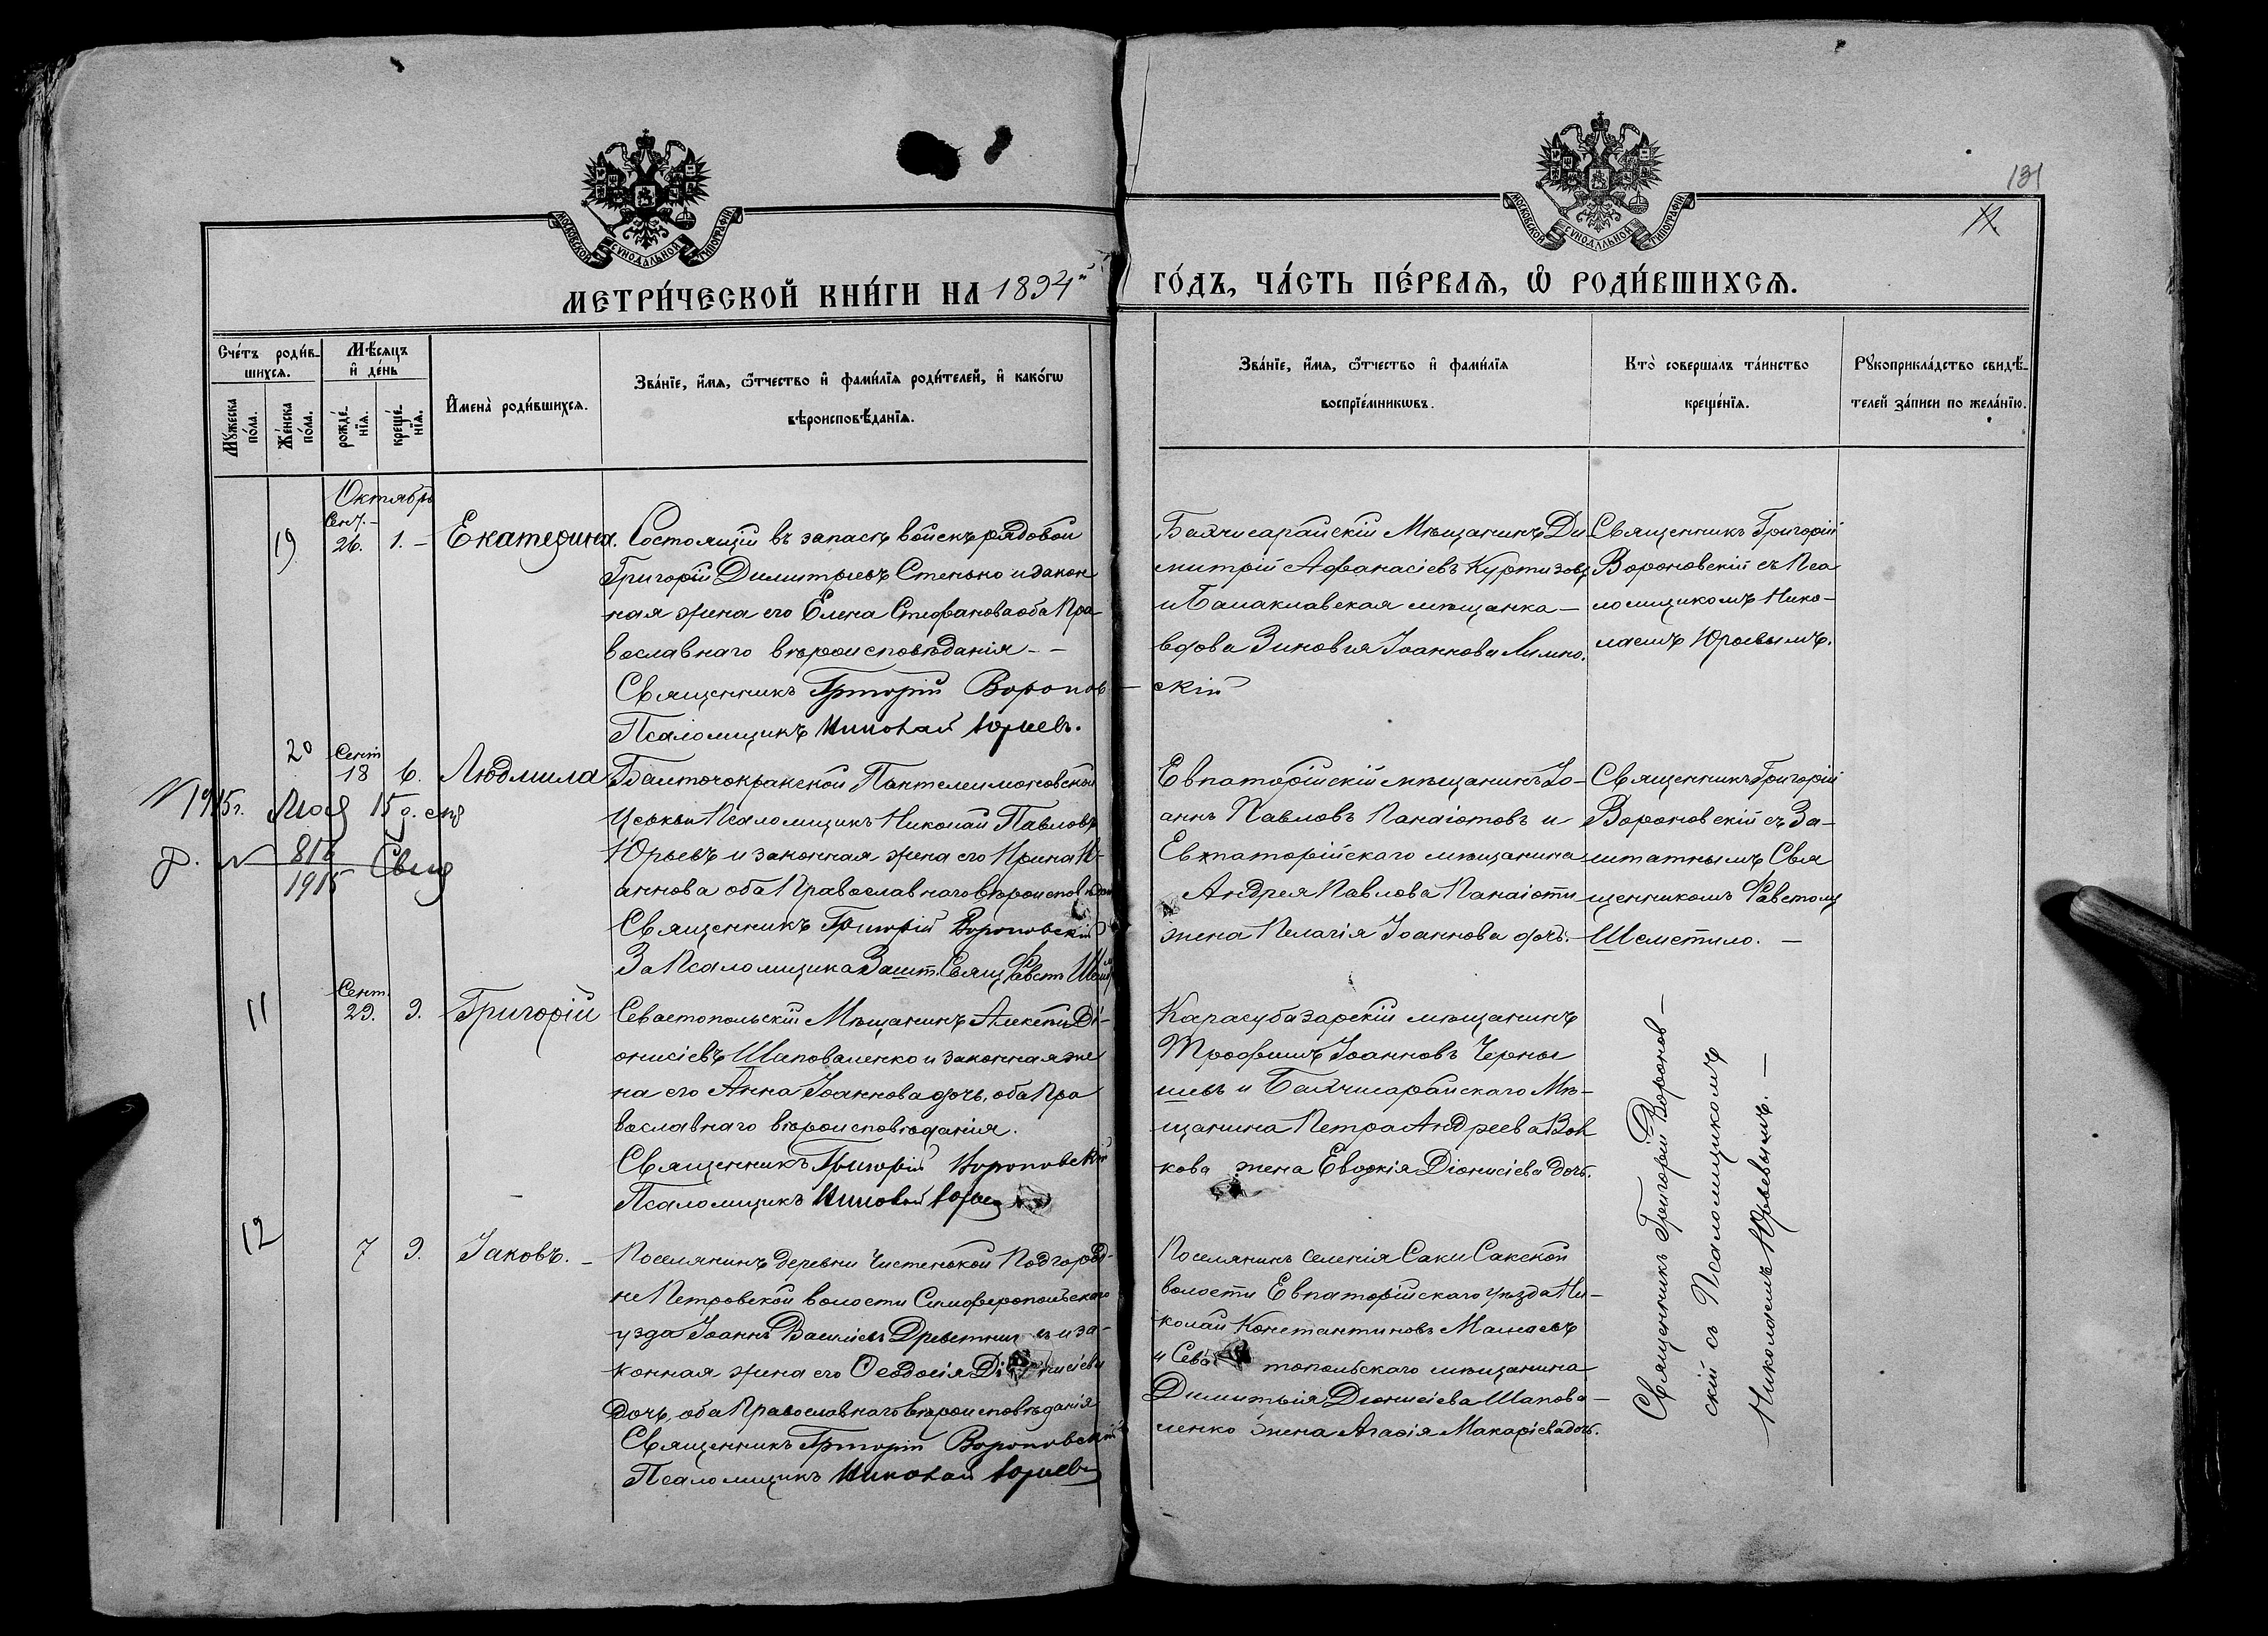 131
МОСКОВСКОЙ СУНОДАЛЬНОЙ ТИПОГРАФІИ
МОСКОВСКОЙ СУНОДАЛЬНОЙ ТИПОГРАФІИ
МЕТРИ́ЧЕСКОЙ КНИ́ГИ НА 1894й ГО́ДЪ, ЧА́СТЬ ПЕ́РВАЯ, Ѡ҆ РОДИ́ВШИХСЯ.
Сче́тъ роди́в-
шихся.
Мꙋ́жеска по́ла.
Же́нска по́ла.
Мѣ́сяцъ и҆ де́нь
рожде́-
нїя.
креще́-
нїя.
И҆мена̀ роди́вшихся.
Зва́нїе, и҆́мя, ѻ҆́тчество и҆ фами́лїя роди́телей, и҆ како́гѡ
вѣроисповѣ́данїя.
Зва́нїе, и҆́мя, ѻ҆́тчество и҆ фами́лїя
воспрїе́мникѡвъ.
Кто̀ соверша́лъ та́инство
креще́нїя.
Рꙋкоприкла́дство свидѣ́-
телей за́писи по жела́нїю.
Октябрь
19 Сент.- 26. 1.- Екатерина.
Состоящій въ запасѣ войскъ рядовой
Григорій Димитріевъ Стенько и закон
ная жена его Елена Стефанова оба Пра-
вославнаго вѣроисповѣданія - -
Священникъ Григорій Воронов-
Псаломщикъ Николай Юрьевъ.
Бахчисарайскій Мѣщанинъ Ди
митрій Аѳанасіевъ
и Балаклавская мѣщанка -
вдова Зиновія Іоаннова
скій
Священникъ Григорій
Вороновскій съ Пса
ломщикомъ Нико-
лаемъ Юрьевымъ.
20 Сент 18 6. Людмила
1915 г. 15 д.
№ 816
1915
Пантелеимоновской
Церкви Псаломщикъ Николай Павловъ
Юрьевъ и законная жена его Ирина Іо-
аннова оба Православнаго вѣроисповѣдан
Священникъ Григорій Вороновскій
За Псаломщика Зашт. Свящ Фавстъ
Евпаторійскій мѣщанинъ Іо-
аннъ Павловъ Панаіотовъ и
Евпаторійскаго мѣщанина
Андрея Павлова Панаіоти
жена Пелагія Іоаннова дочь. -
Священникъ Григорій
Вороновскій съ За-
штатнымъ Свя
щенникомъ Фавстомъ
Шеметило. -
11 Сент. 29. 9. Григорій
Севастопольскій Мѣщанинъ Алексѣй Ді-
онисіевъ Шаповаленко и законная же
на его Анна Іоаннова дочь, оба Пра
вославнаго вѣроисповѣданія.
Священникъ Григорій Вороновскій
Псаломщикъ Николай Юрьев
Карасубазарскій мѣщанинъ
Трофимъ Іоанновъ Черны
шевъ и Бахчисарайскаго Мѣ-
щанина Петра Андреева Вол
кова жена Евдокія Діонисіева дочь.
12 7 9. Іаковъ. -
Поселянинъ деревни Чистенькой Подгород-
не Петровской волости Симферопольскаго
уѣзда Іоаннъ Василіевъ и за-
конная жена его Ѳеодосія Діонисіева
дочь, оба Православнаго вѣроисповѣданія
Священникъ Григорій Вороновскій
Псаломщикъ Николай Юрьевъ
Поселянинъ селенія Саки Сакской
волости Евпаторійскаго уѣзда Ни-
колай Константиновъ
и Севастопольскаго мѣщанина
Димитрія Діонисіева Шапова-
ленко жена Агафія Макаріева дочь.
Священникъ Григорій Воронов-
скій съ Псаломщикомъ
Николаемъ Юрьевымъ. -